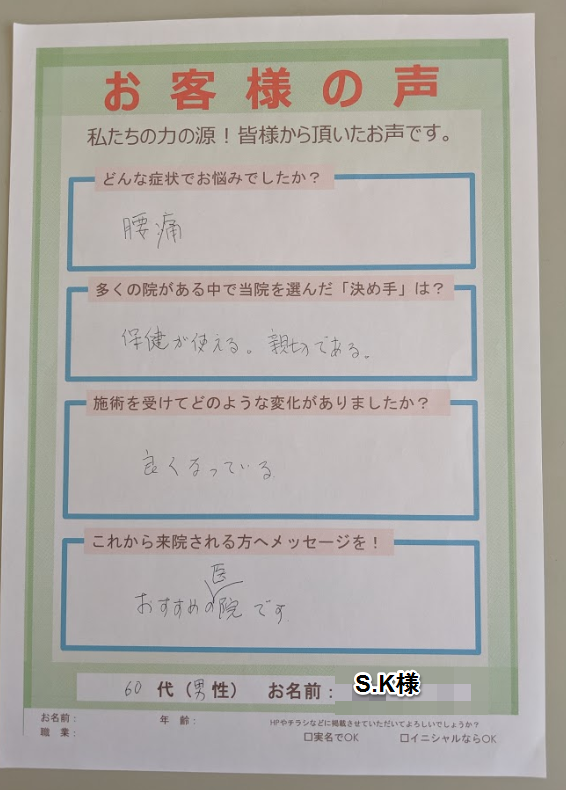 お客様の声
私たちの力の源！皆様から頂いたお声です。
どんな症状でお悩みでしたか？
腰痛
多くの院がある中で当院を選んだ「決め手」は？
保健が使える。親切である。
施術を受けてどのような変化がありましたか？
良くなっている
これから来院される方へメッセージを！
おすすめの医院です
60代（男性） お名前：S.K様
お名前： 年齢： HPやチラシなどに掲載させていただいてよろしいでしょうか？
職業： □実名でOK □イニシャルならOK